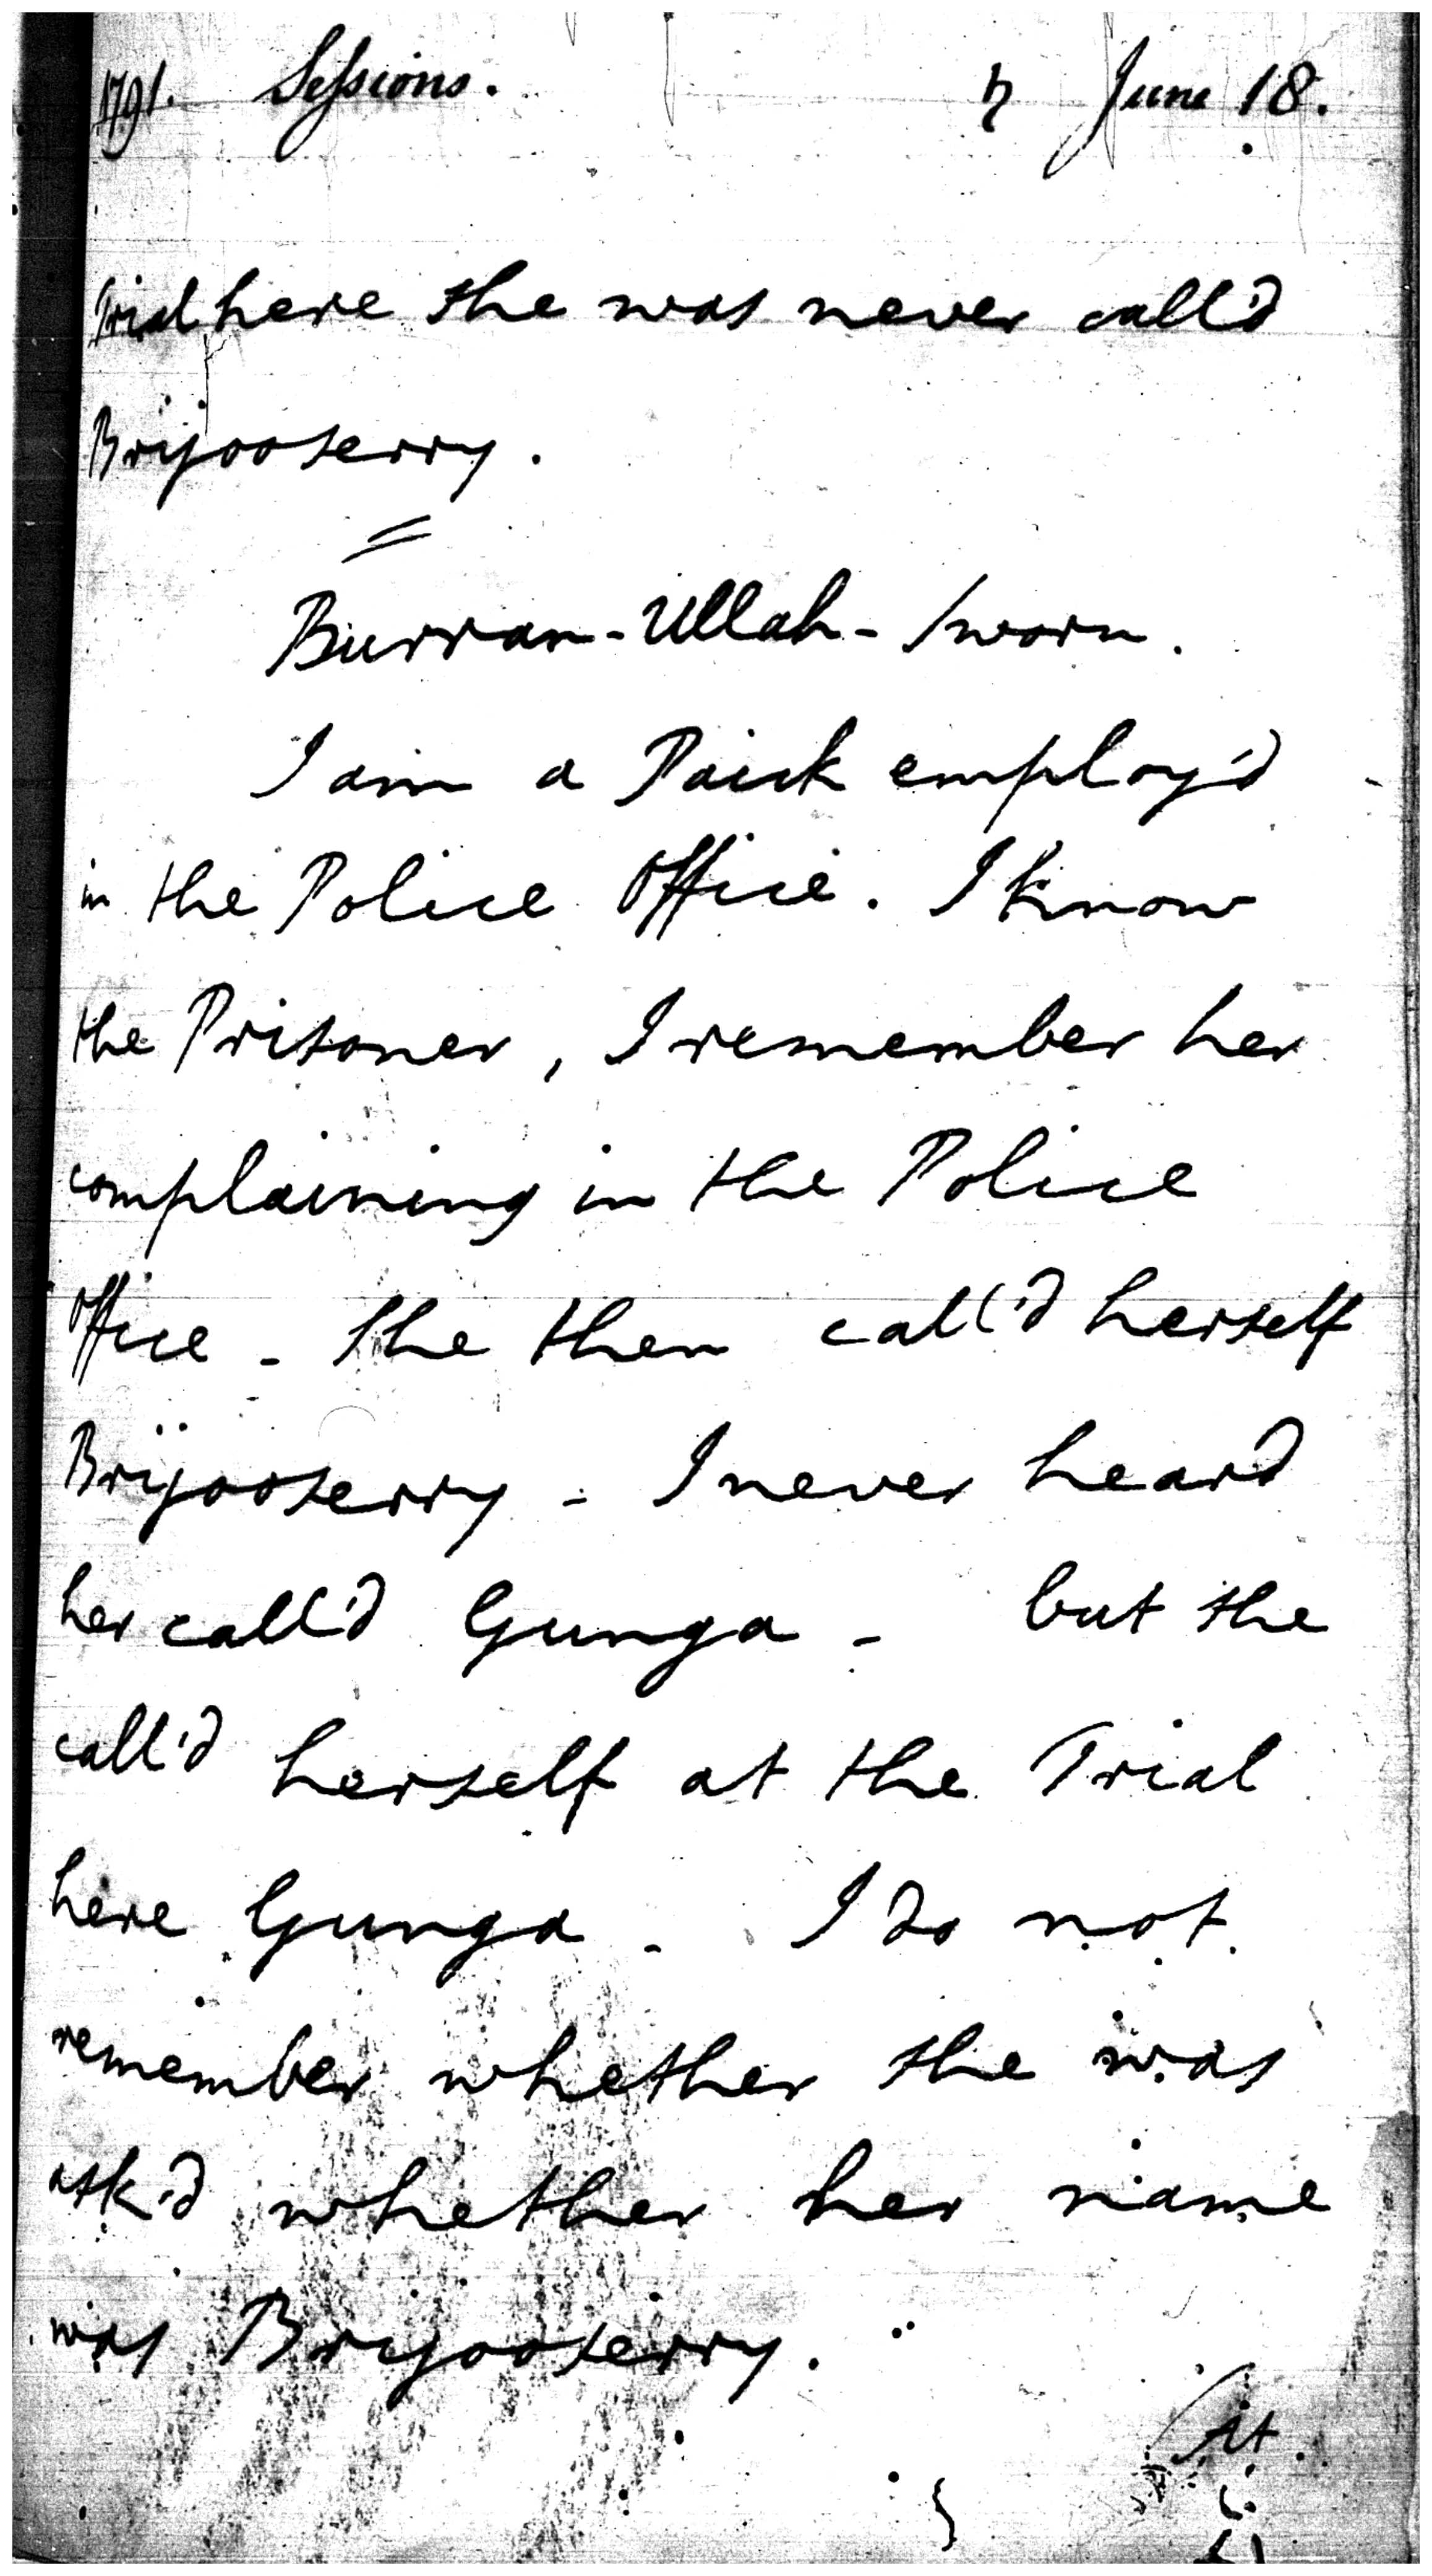 1791. Sessions. ♄ June 18.
Trial here she was never call'd
Brijooserry.
Burran-Ullah - sworn.
I am a Paick employ'd
in the Police Office. I know
the Prisoner, I remember her
complaining in the Police
Office - She then call'd herself
Brijooserry - I never heard
her call'd Gunga - but she
call'd herself at the Trial
here Gunga - I do not
remember whether she was
ask'd whether her name
was Brijooserry.